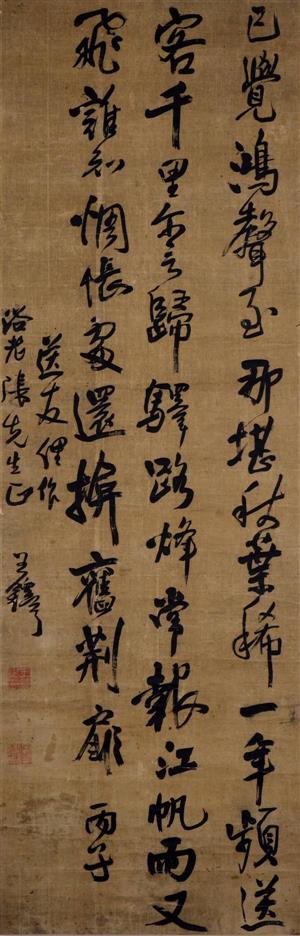 已覺鴻聲至那堪秋葉稀一年頻送
客千里尔言歸驛路烽常報江帆雨又
飛誰知惆悵處還掩舊荊扉 丙子
送友俚作
老張先生正 王鐸